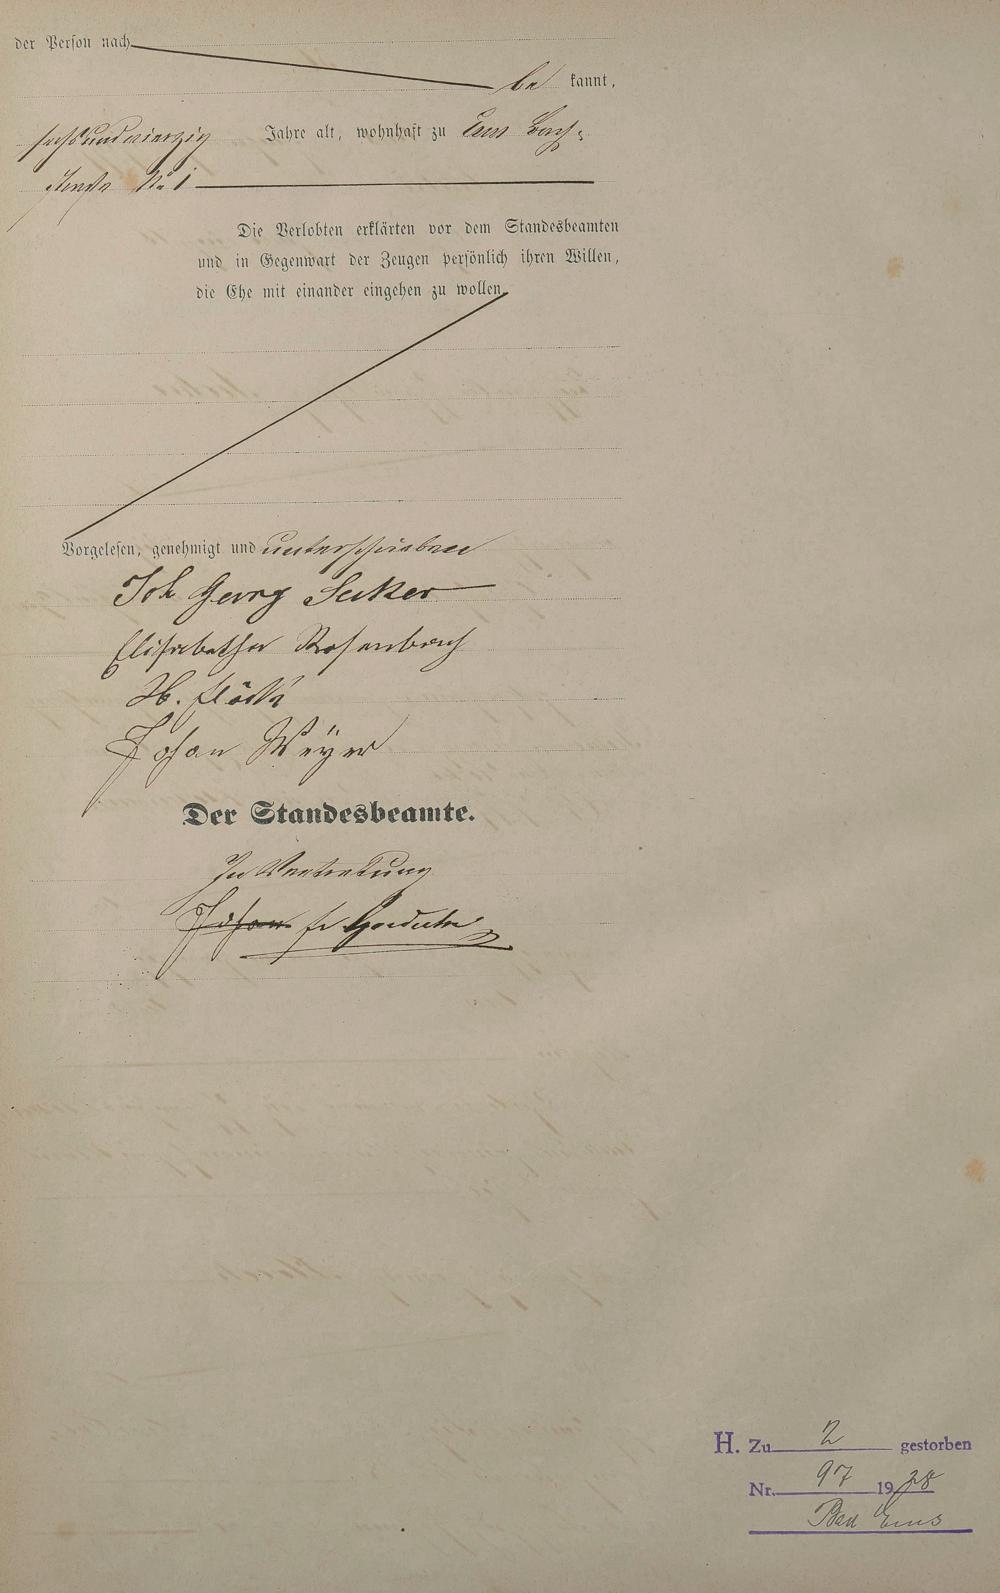 der Person nach
be kannt,
sechsundvierzig Jahre alt, wohnhaft zu Ems Bach-
straße No 1
Die Verlobten erklärten vor dem Standesbeamten
und in Gegenwart der Zeugen persönlich ihren Willen,
die Ehe mit einander eingehen zu wollen.
Vorgelesen, genehmigt und unterschrieben
Joh Georg
Elisabetha Rosenbach
H. Flöck
Johan Weÿer
Der Standesbeamte.
In Vertretung
Johan
H. Zu 2 gestorben
Nr. 97 1938
Bad Ems